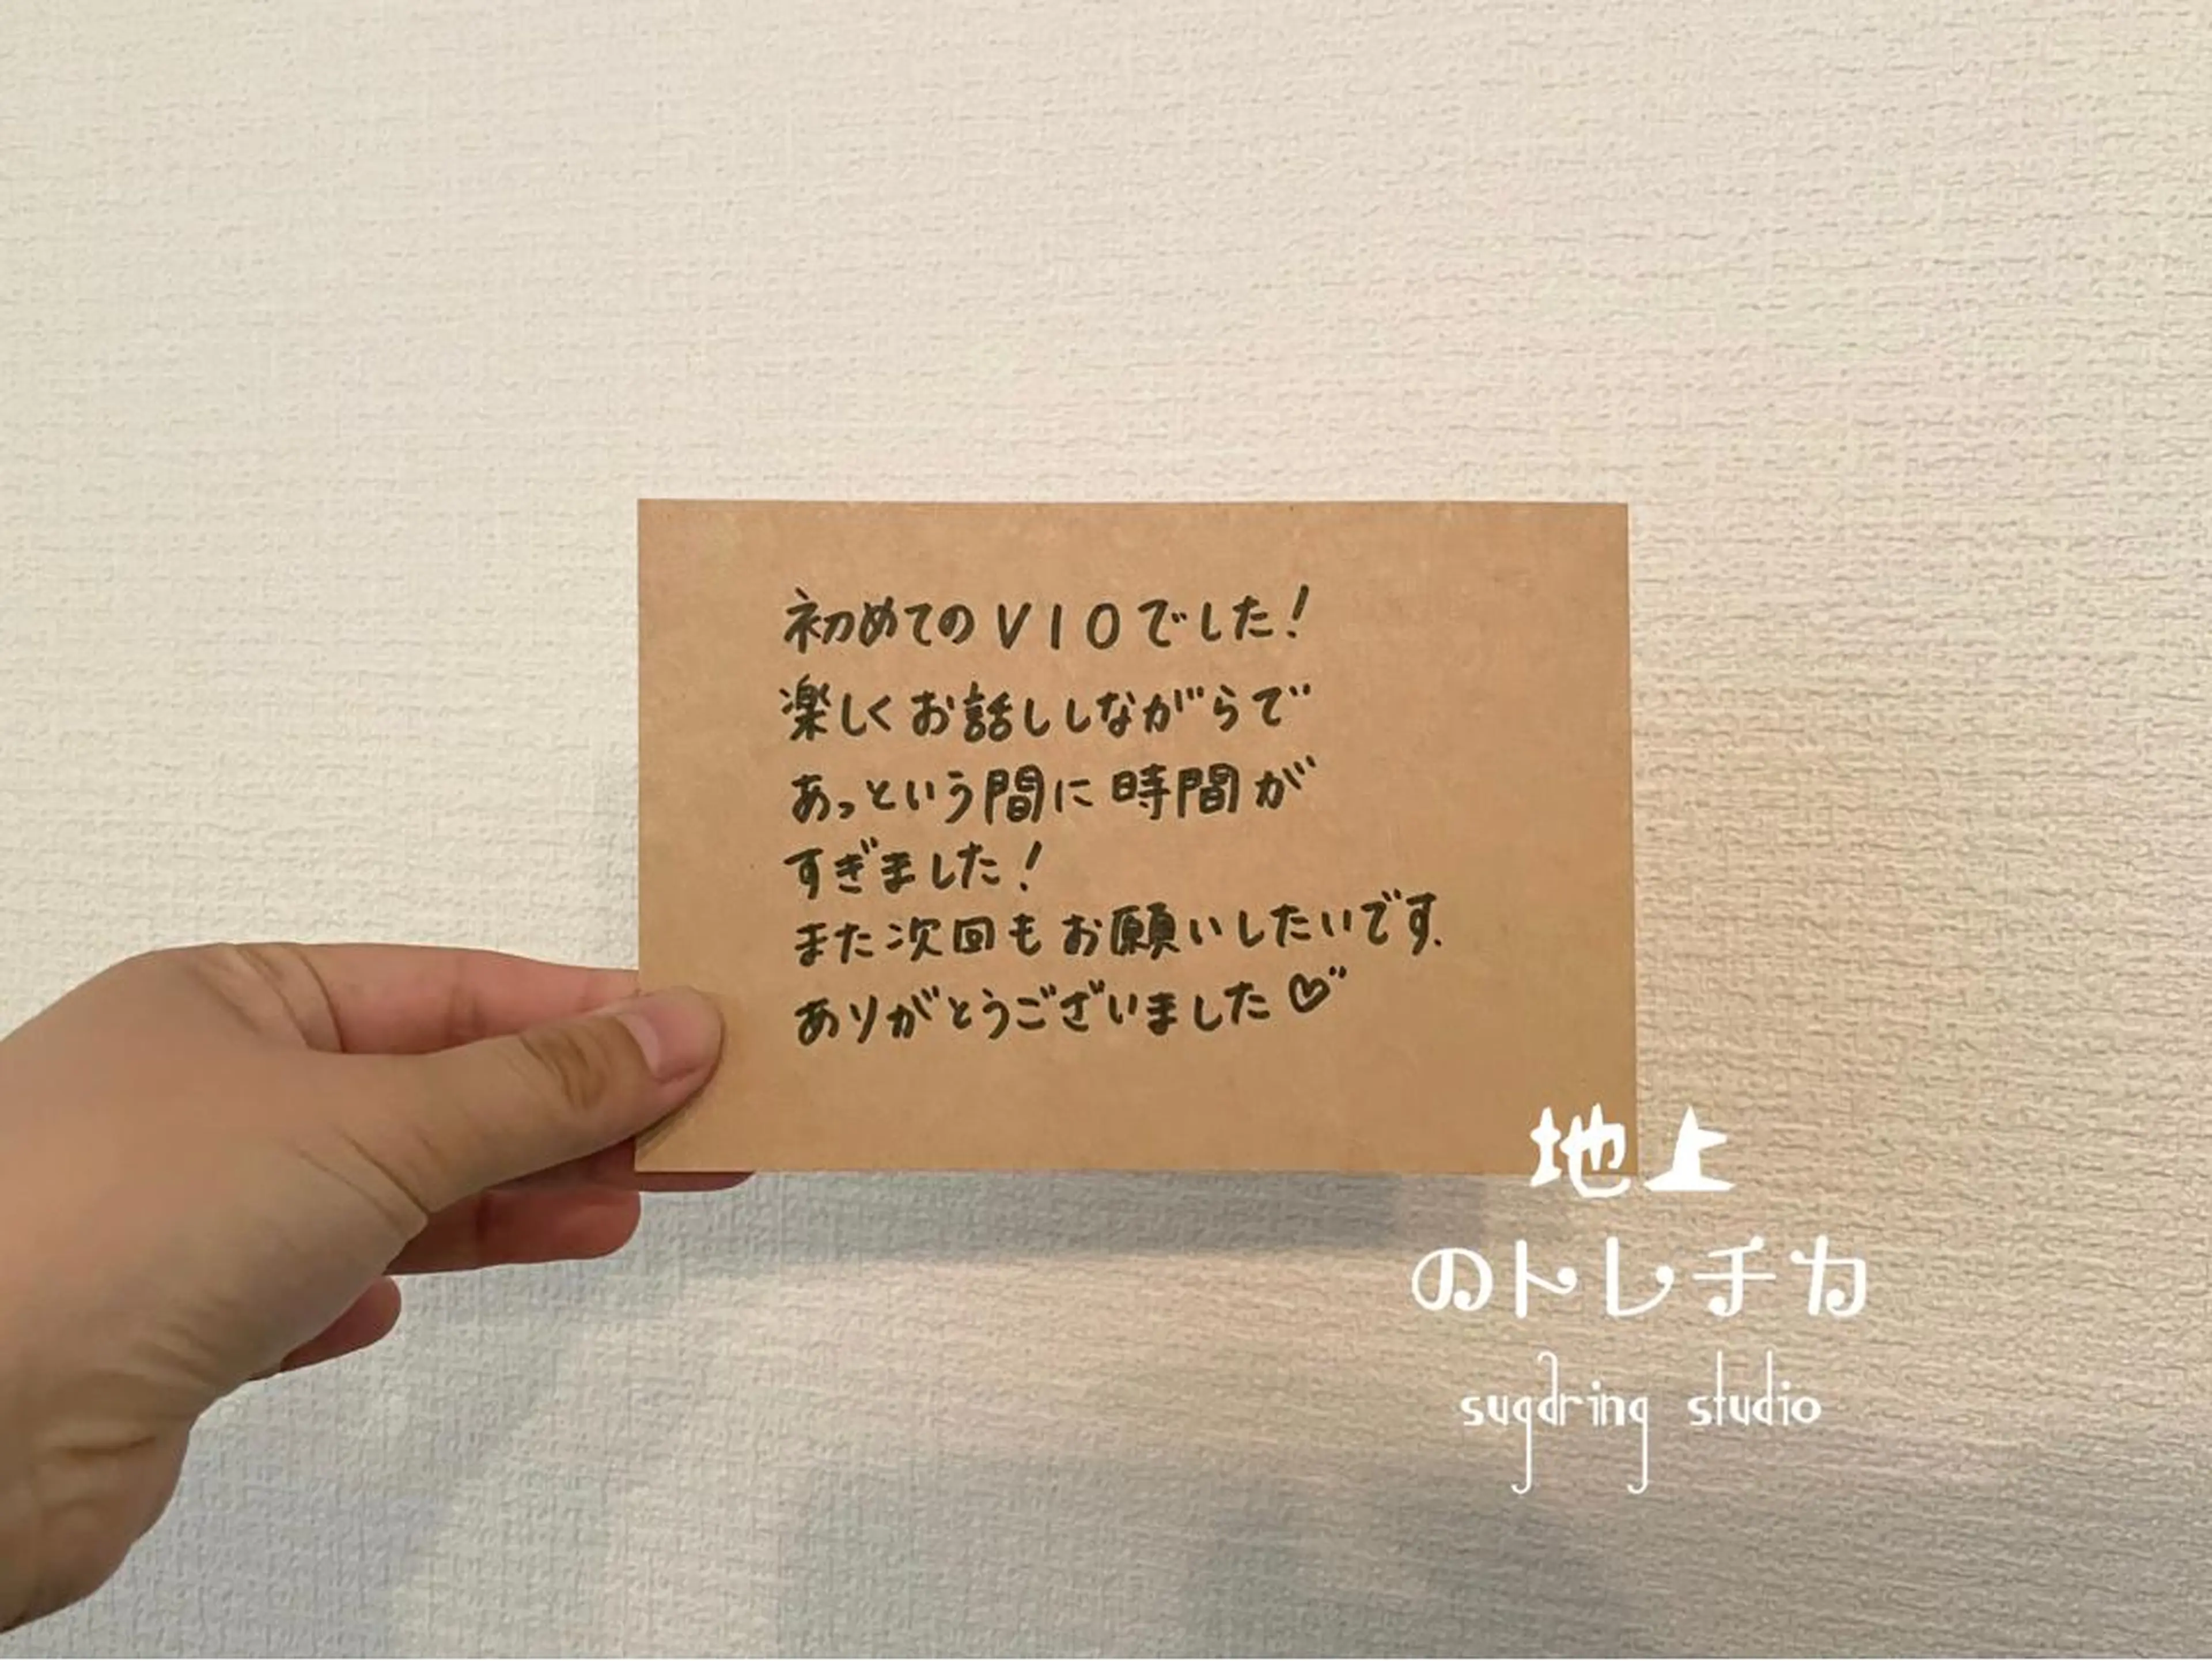 初めてのVIOでした!
楽しくお話ししながらで
あっという間に時間が
すぎました!
また次回もお願いしたいです.
ありがとうございました♡
地上
のトレチカ
sugaring studio